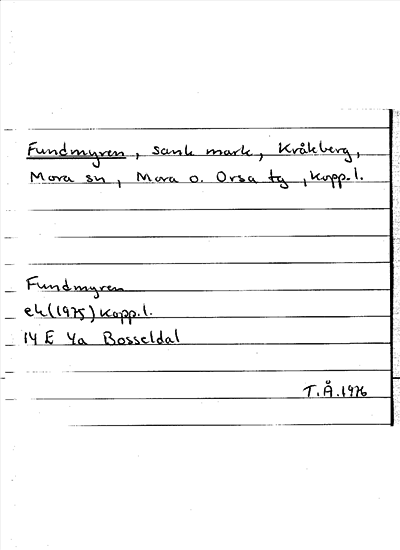 Fundmyren, sank mark, Kråkberg,
Mora sn, Mora o. Orsa tg, Kopp.l.
Fundmyren
ek(1975) Kopp.l.
14 E 4a Bosseldal
T.Å.1976